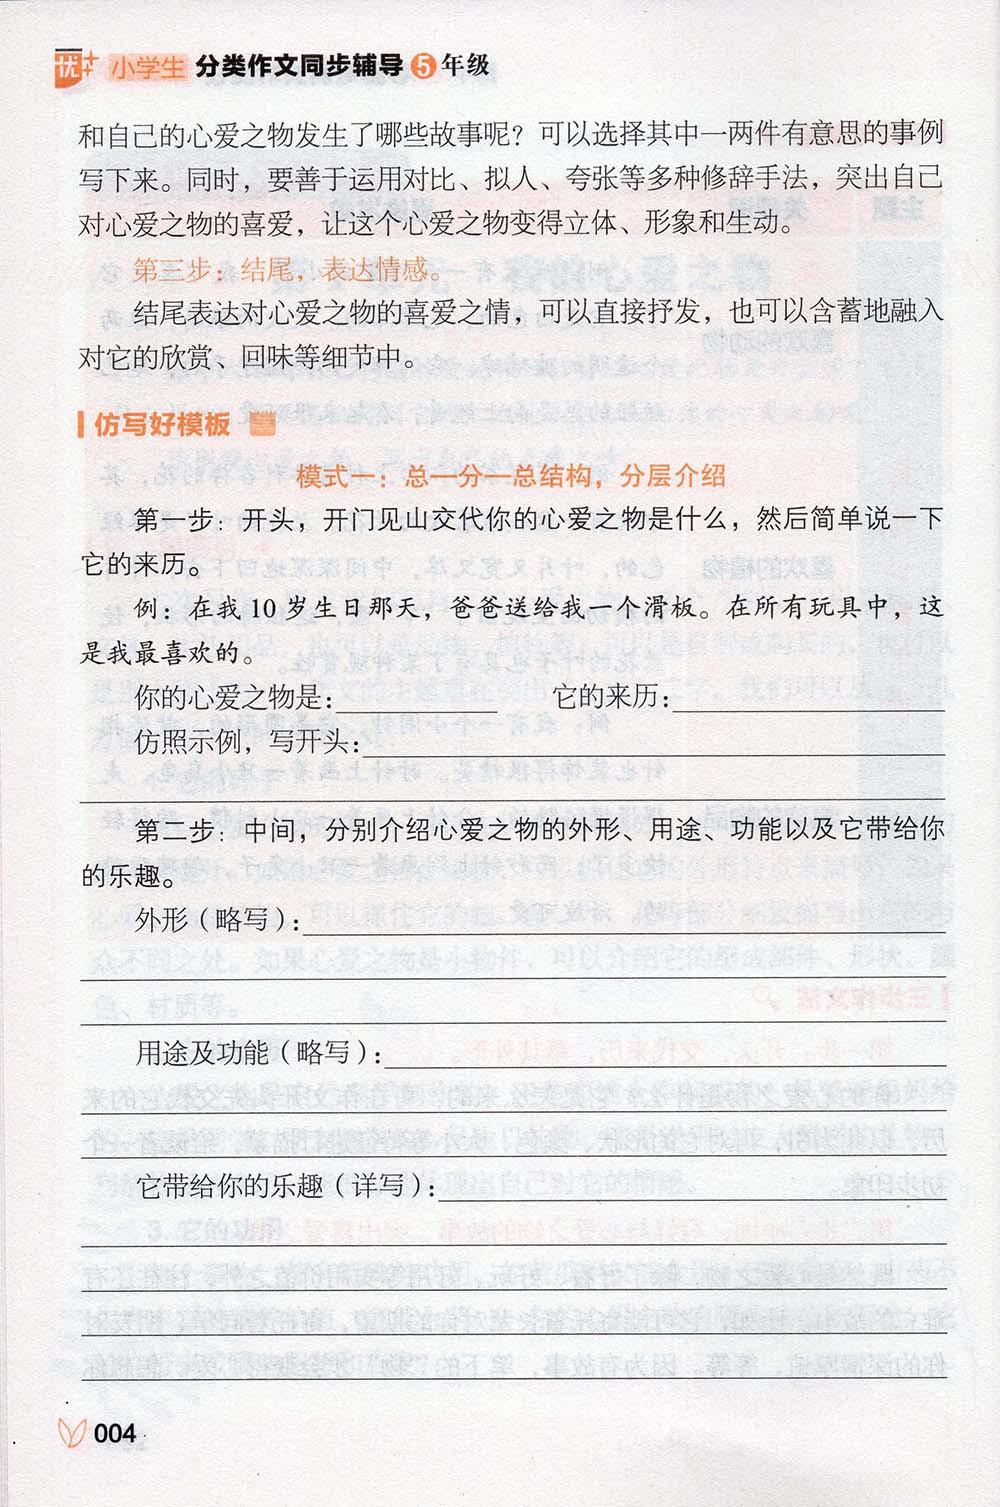 优+ 小学生 分类作文同步辅导5年级
和自己的心爱之物发生了哪些故事呢？可以选择其中一两件有意思的事例
写下来。同时，要善于运用对比、拟人、夸张等多种修辞手法，突出自己
对心爱之物的喜爱，让这个心爱之物变得立体、形象和生动。
第三步：结尾，表达情感。
结尾表达对心爱之物的喜爱之情，可以直接抒发，也可以含蓄地融入
对它的欣赏、回味等细节中。
仿写好模板
模式一：总—分—总结构，分层介绍
第一步：开头，开门见山交代你的心爱之物是什么，然后简单说一下
它的来历。
例：在我10岁生日那天，爸爸送给我一个滑板。在所有玩具中，这
是我最喜欢的。
你的心爱之物是： 它的来历：
仿照示例，写开头：
第二步：中间，分别介绍心爱之物的外形、用途、功能以及它带给你
的乐趣。
外形（略写）：
用途及功能（略写）：
它带给你的乐趣（详写）：
004